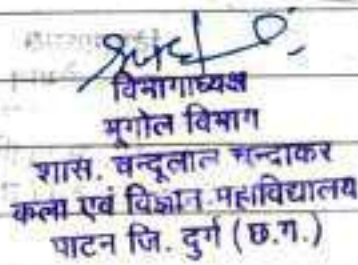 विभागाध्यक्ष
भूगोल विभाग
शास. चन्दूलाल चन्द्राकर
कला एवं विज्ञान महाविद्यालय
पाटन जि. दुर्ग (छ.ग.)